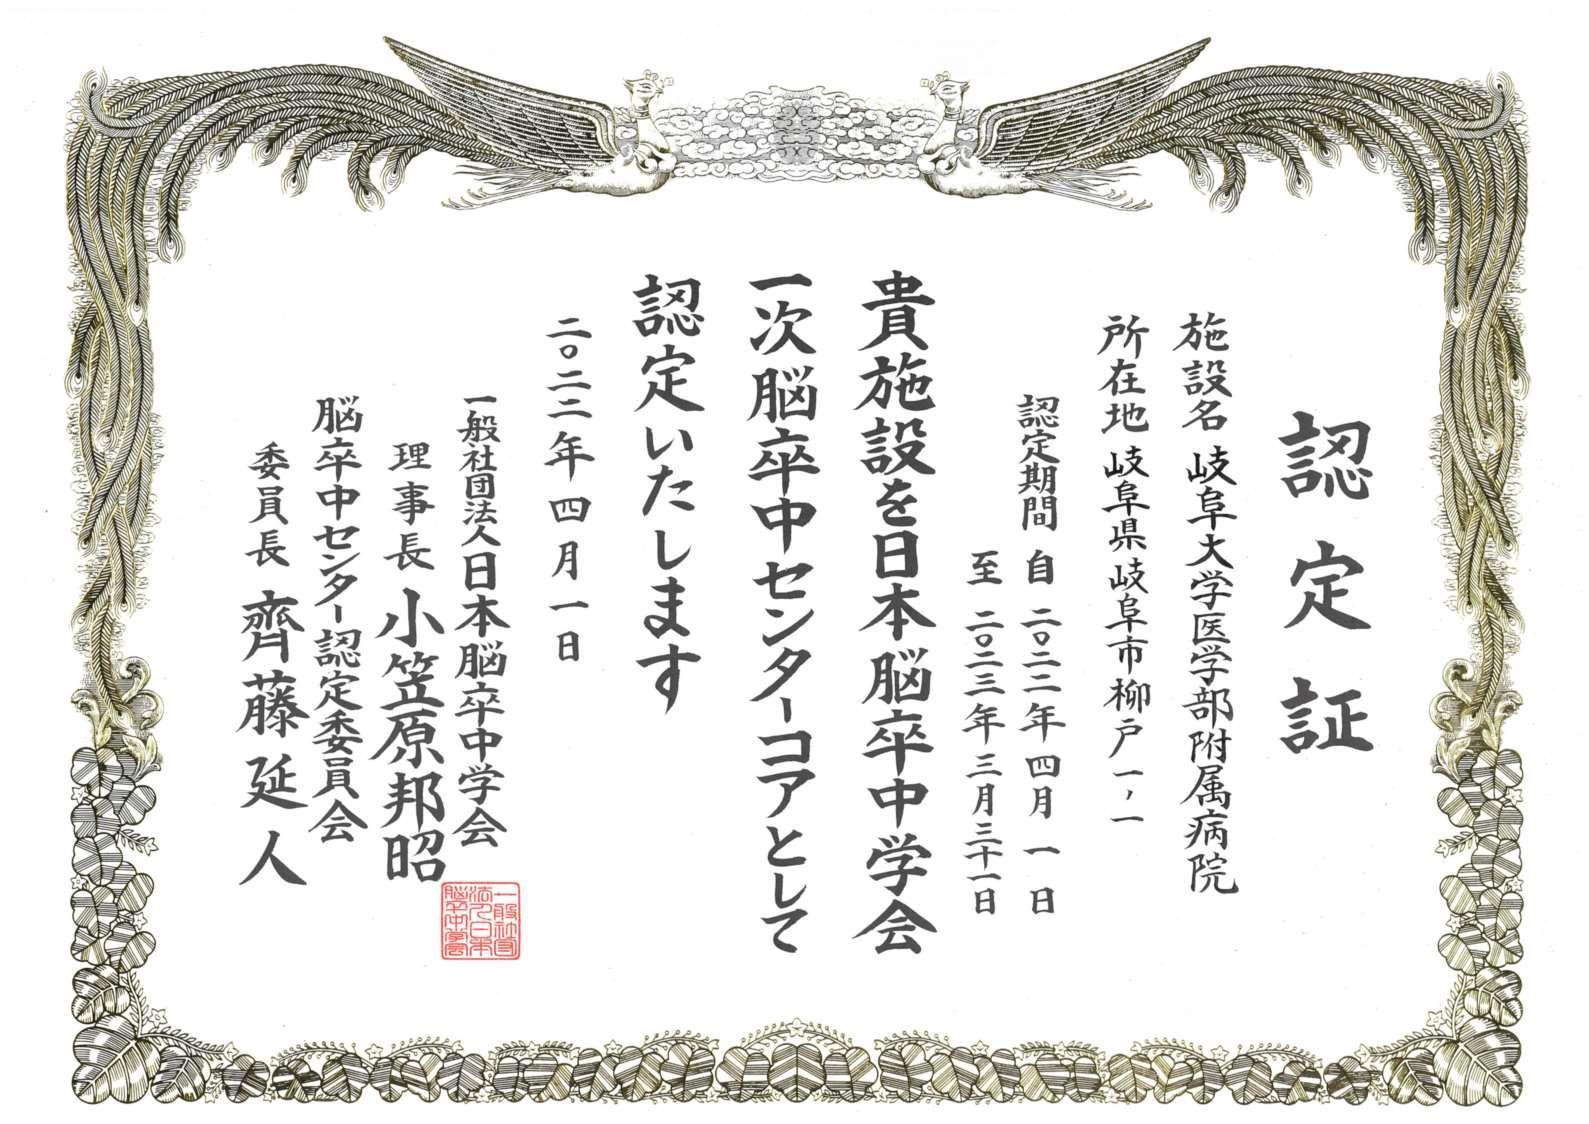 認定証
施設名 岐阜大学医学部附属病院
所在地 岐阜県岐阜市柳戸一ノ一
認定期間 自 二〇二二年 四月 一日
至 二〇二三年 三月三十一日
貴施設を日本脳卒中学会
一次脳卒中センターコアとして
認定いたします
二〇二二年 四月 一日
一般社団法人日本脳卒中学会
理事長 小笠原邦昭
脳卒中センター認定委員会
委員長 齊藤延人
一般社団
法人日本
脳卒中学会